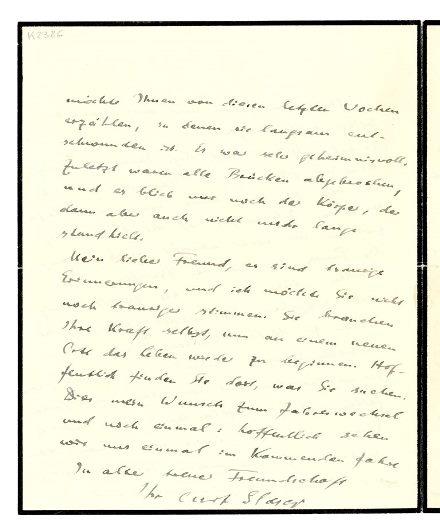 K2326
möchte Ihnen von diesen letzten Wochen
erzählen, in denen sie langsam ent-
schwunden ist. Es war sehr geheimnisvoll.
Zuletzt waren alle Brücken abgebrochen,
und es blieb nur noch der Körper, der
dann aber auch nicht mehr lange
stand hielt.
Mein lieber Freund, es sind traurige
Erinnerungen, und ich möchte Sie nicht
noch trauriger stimmen. Sie brauchen
Ihre Kraft selbst, um an einem neuen
Orte das Leben wieder zu beginnen. Hof-
fentlich finden Sie dort, was Sie suchen.
Dies mein Wunsch zum Jahreswechsel
und noch einmal: hoffentlich sehen
wir uns einmal im Kommenden Jahre
In alter treuer Freundschaft
Ihr Curt Glaser